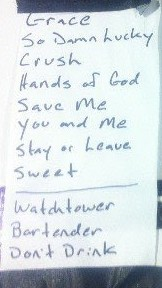 Grace
So Damn Lucky
Crush
Hands of God
Save Me
you and Me
Stay or Leave
Sweet
Watchtower
Bartender
Don't Drink